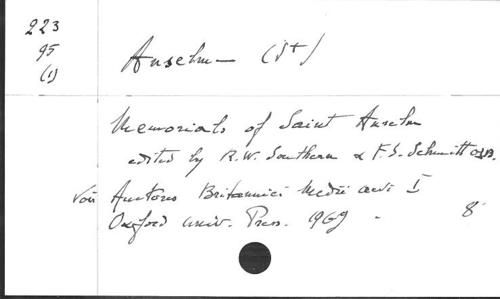 223
95
(1)
Anselm (St)
Memorials of Saint Anselm
edited by R.W. Southern & F.S. Schmitt OSB.
Voir Auctores Britannici Medii aevi I
Oxford Univ. Press. 1969. 8°